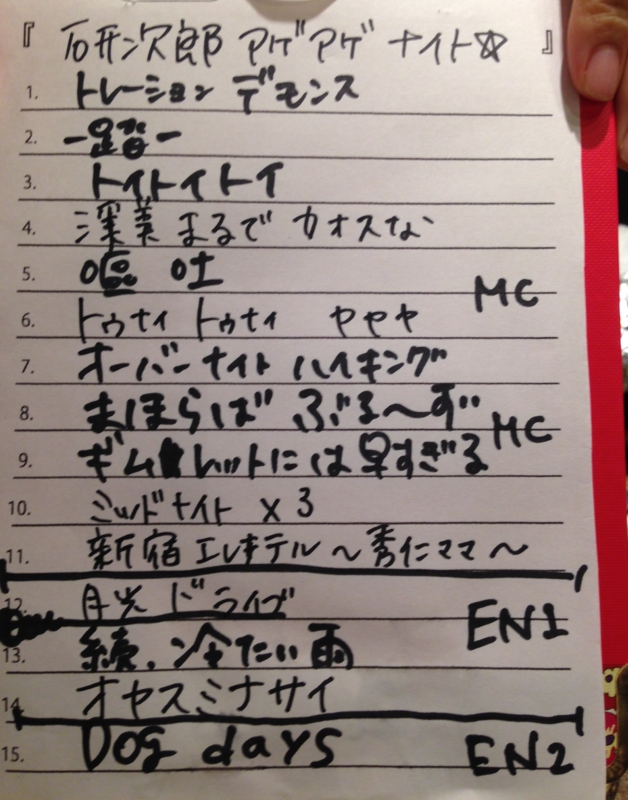 『 石井次郎 アゲアゲ ナイト☆ 』
1. トレーション デモンス
2. ー足音ー
3. トイトイトイ
4. 深美 まるで カオスな
5. 嘔吐
MC
6. トゥナイ トゥナイ ヤヤヤ
7. オーバーナイト ハイキング
8. まほらば ぶる〜ず
MC
9. ギムレットには早すぎる
10. ミッドナイト x 3
11. 新宿 エレキテル 〜秀仁ママ〜
12. 月光 ドライブ
EN1
13. 続、冷たい雨
14. オヤスミナサイ
15. Dog days
EN2